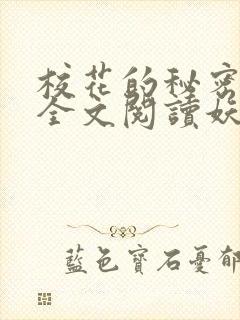 校花的秘密
全文閱讀妖
藍色寶石憂郁